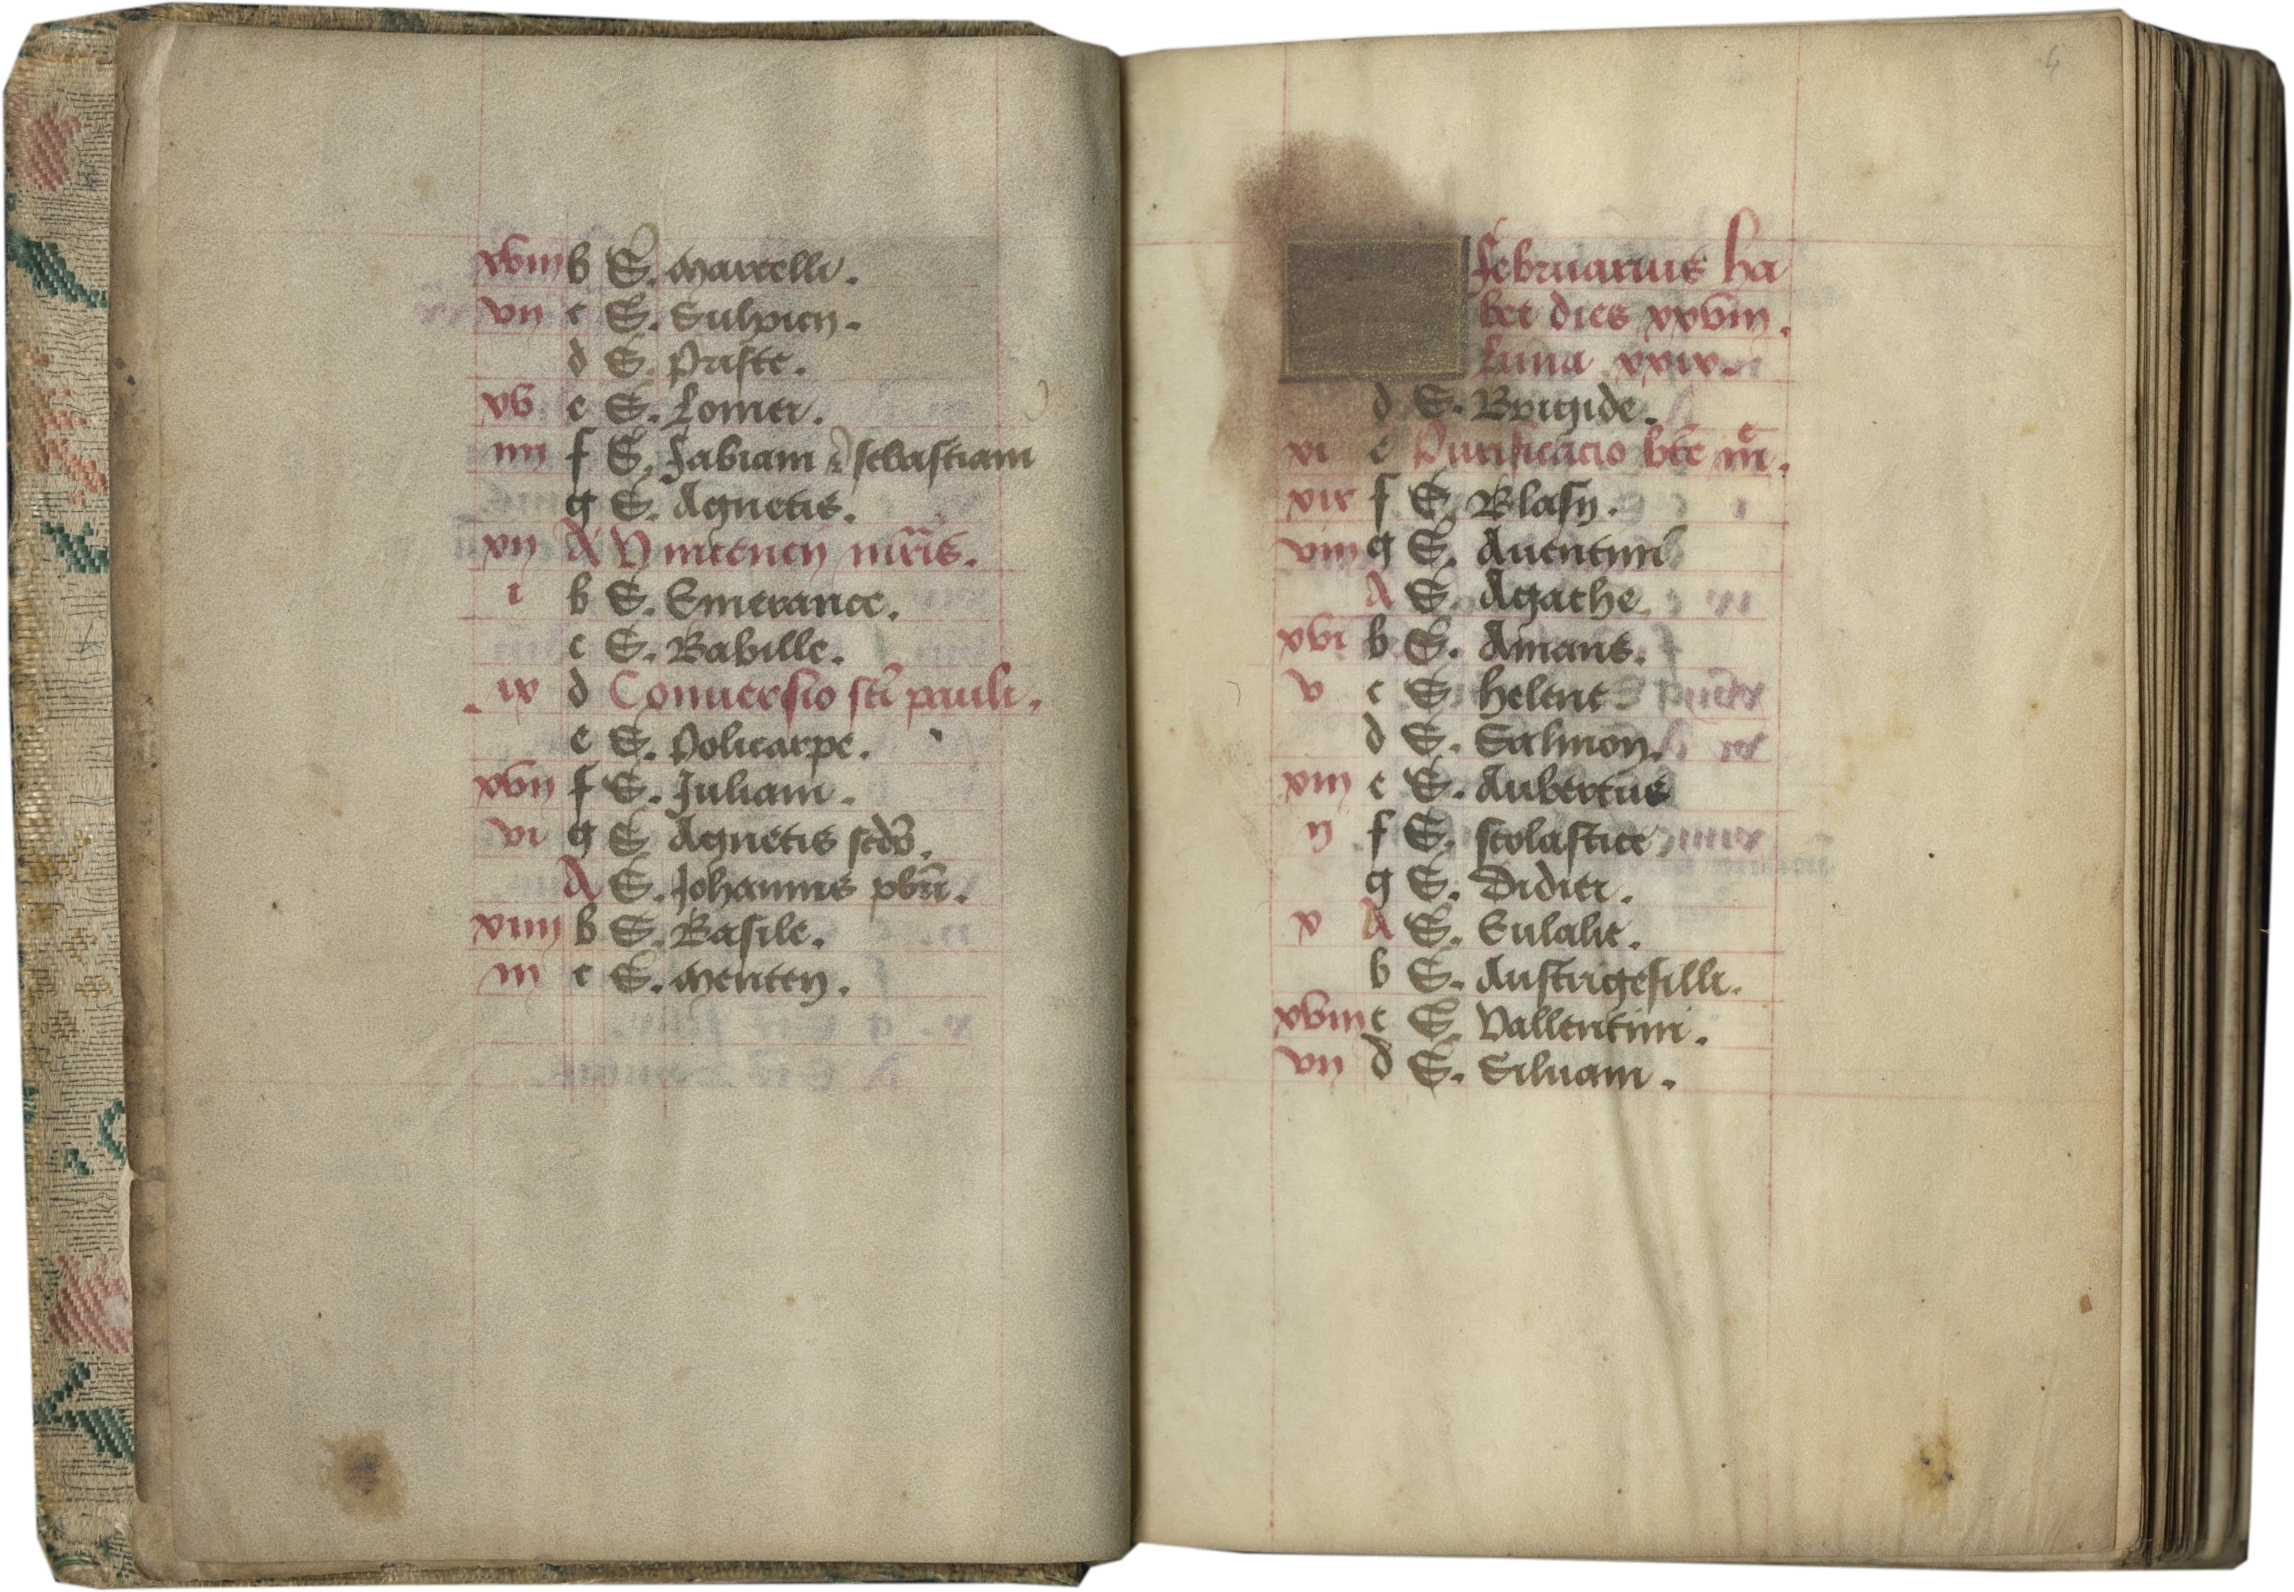 xviii b S. Marcelli.
vii c S. Sulpicii.
d S. Prafte.
xv e S. Lomer.
iiii f S. Fabiani & sebastiani
g S. Agnetis.
xii A Vincencii mr̄is.
i b S. Emerance.
c S. Babille.
ix d Conversio sc̄i pauli.
e S. Policarpe.
xvii f S. Juliani.
vi g S. Agnetis scd̄o.
A S. Johannis pbr̄i.
xiiii b S. Basile.
iii c S. Metten.
4
Februarius ha
bet dies xxviii.
Luna xxix.
d S. Brigide.
xi e Purificacio bt̄e m̄e.
xix f S. Blasii.
viii g S. Aventini
A S. Agathe.
xvi b S. Amans.
v c S. helene
d S. Salmon.
xiii e S. Aubertus
ii f S. scolastice
g S. Didier.
x A S. Eulalie.
b S. Austrigesilli.
xviii c S. Vallentini.
vii d S. Silvani.